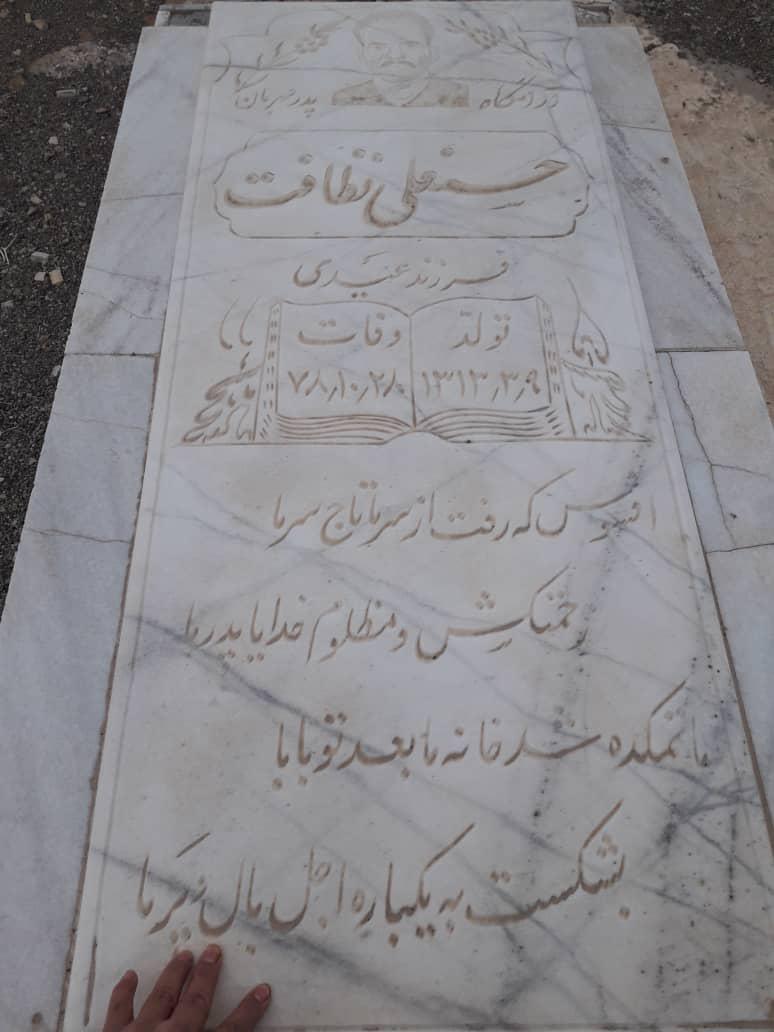 آرامگاه پدر مهربان
حسنعلی نظافت
فرزند عیدی
تولد وفات
۱۳۱۳٫۳٫۹ ۷۸٫۱۰٫۲۸
افسوس که رفت از سر ما تاج سر ما
زحمتکش و مظلوم خدایا پدر ما
ماتمکده شد خانه ما بعد تو بابا
بشکست به یکباره اجل بال و پر ما